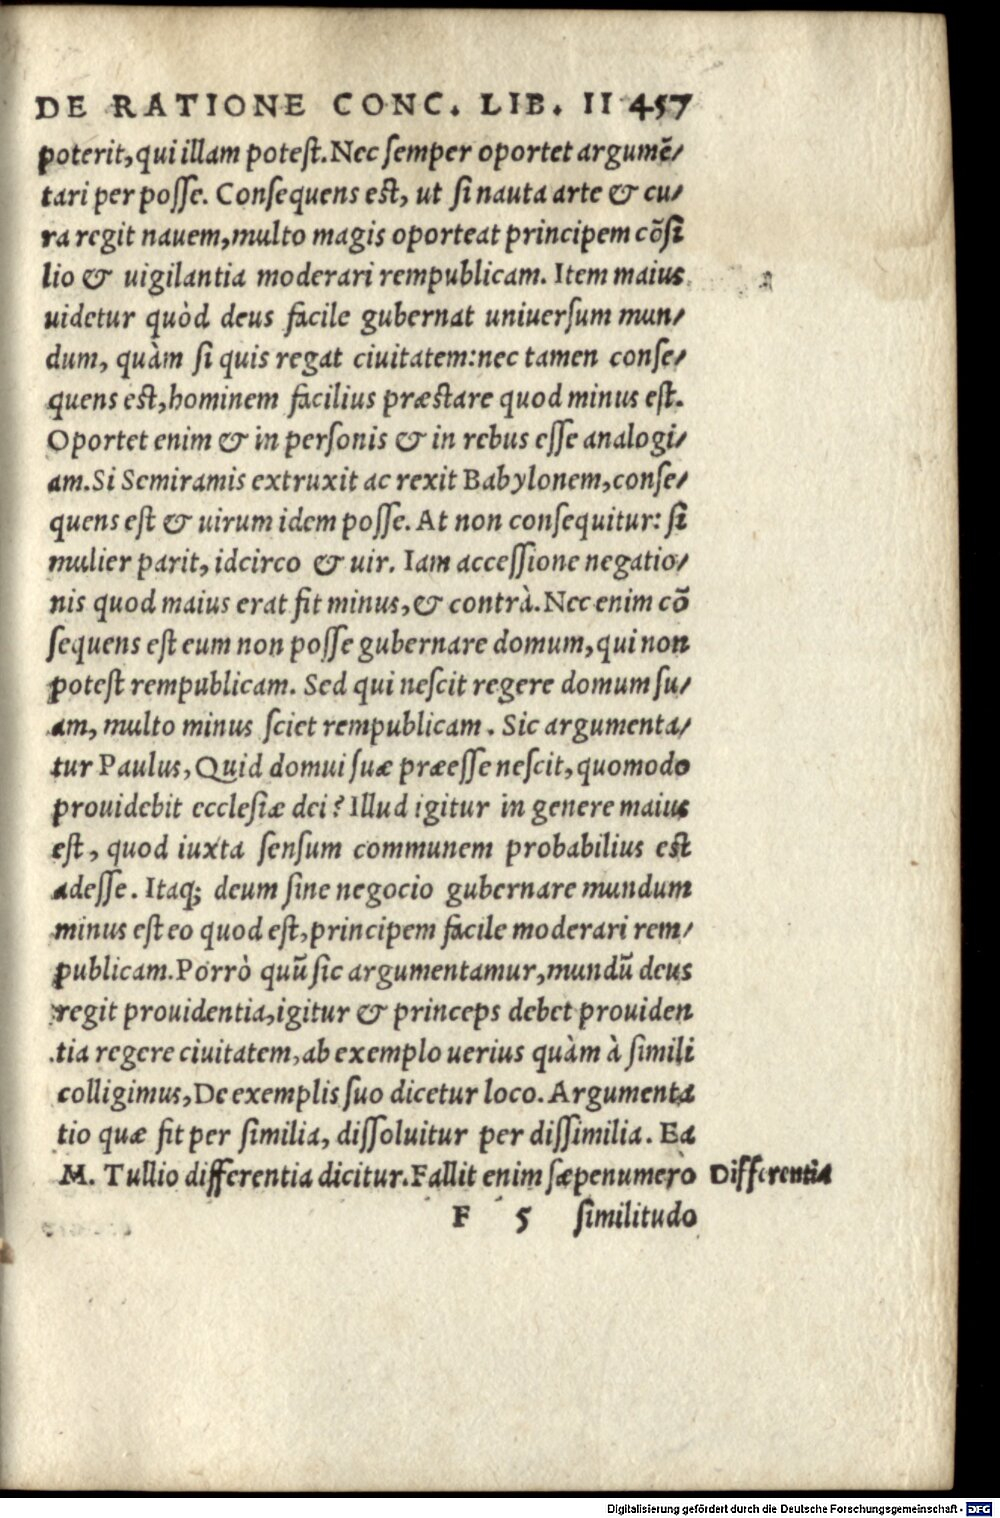 DE RATIONE CONC. LIB. II 457
poterit, qui illam poteſt. Nec ſemper oportet argumẽ/
tari per poſſe. Conſequens eſt, ut ſi nauta arte & cu/
ra regit nauem, multo magis oporteat principem cõſi
lio & uigilantia moderari rempublicam. Item maius
uidetur quòd deus facile gubernat uniuerſum mun/
dum, quàm ſi quis regat ciuitatem: nec tamen conſe/
quens eſt, hominem facilius præſtare quod minus eſt.
Oportet enim & in perſonis & in rebus eſſe analogi/
am. Si Semiramis extruxit ac rexit Babylonem, conſe/
quens eſt & uirum idem poſſe. At non conſequitur: ſi
mulier parit, idcirco & uir. Iam acceſſione negatio/
nis quod maius erat fit minus, & contrà. Nec enim cõ
ſequens eſt eum non poſſe gubernare domum, qui non
poteſt rempublicam. Sed qui neſcit regere domum ſu/
am, multo minus ſciet rempublicam. Sic argumenta/
tur Paulus, Quid domui ſuæ præeſſe neſcit, quomodo
prouidebit eccleſiæ dei? Illud igitur in genere maius
eſt, quod iuxta ſenſum communem probabilius eſt
adeſſe. Itaq; deum ſine negocio gubernare mundum
minus eſt eo quod eſt, principem facile moderari rem/
publicam. Porrò quũ ſic argumentamur, mundũ deus
regit prouidentia, igitur & princeps debet prouiden
tia regere ciuitatem, ab exemplo uerius quàm à ſimili
colligimus, De exemplis ſuo dicetur loco. Argumenta
tio quæ fit per ſimilia, diſſoluitur per diſſimilia. Ea
M. Tullio differentia dicitur. Fallit enim ſæpenumero Differentia
F 5 ſimilitudo
Digitalisierung gefördert durch die Deutsche Forschungsgemeinschaft - DFG